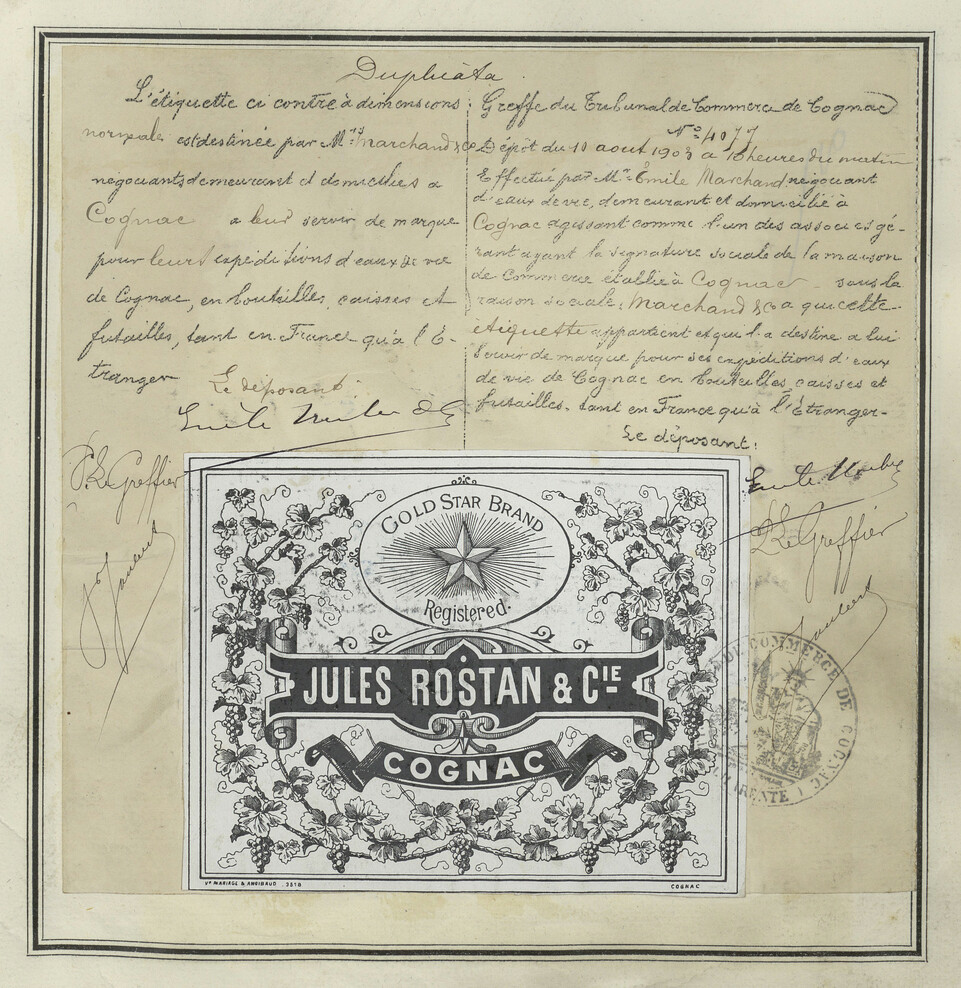 Duplicata
L'étiquette ci contre à dimensions
normale est destinée par M.rs Marchand & Co
négociants demeurant et domiciliés a
Cognac a leur servir de marque
pour leurs expéditions d'eaux de vie
de Cognac, en bouteilles, caisses et
futailles, tant en France qu'à l'É-
tranger
Le déposant:
P. Le Greffier
Greffe du Tribunal de Commerce de Cognac
No 4077
Dépôt du 10 aout 1903 a 10 heures du matin
Effectué par Mr Émile Marchand négociant
d'eaux de vie, demeurant et domicilié à
Cognac agissant comme l'un des associés gé-
rant ayant la signature sociale de la maison
de Commerce établie à Cognac - sous la
raison sociale: Marchand & Co a qui cette
étiquette appartient et qui l'a destine a lui
servir de marque pour ses expéditions d'eaux
de vie de Cognac en bouteilles caisses et
futailles. tant en France qu'à l'Étranger-
Le déposant:
P. Le Greffier
GOLD STAR BRAND
Registered.
JULES ROSTAN & CIE
COGNAC
Vve MARIAGE & ANGIBAUD . 3518
COGNAC
DE COMMERCE DE COGNAC
CHARENTE